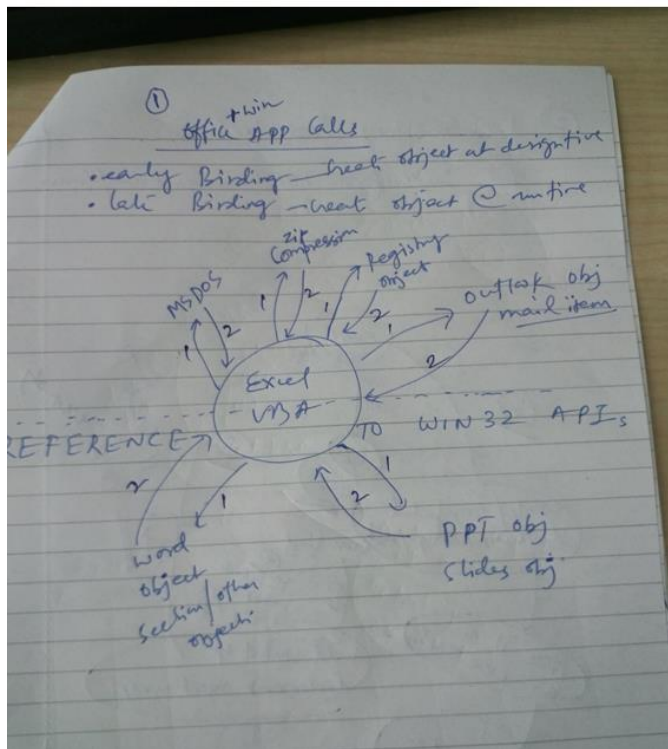 ①
+ win
Office App Calls
• early Binding — Creat object at designtime
• late Binding — creat object @ runtime
Zip
Compression
Registry
object
MSDOS
Outlook obj
mail item
1
2
1
2
1
2
1
2
Excel
VBA
REFERENCE TO WIN 32 APIs
2
1
1
2
Word
object
Section/other
objects
PPT obj
Slides obj.